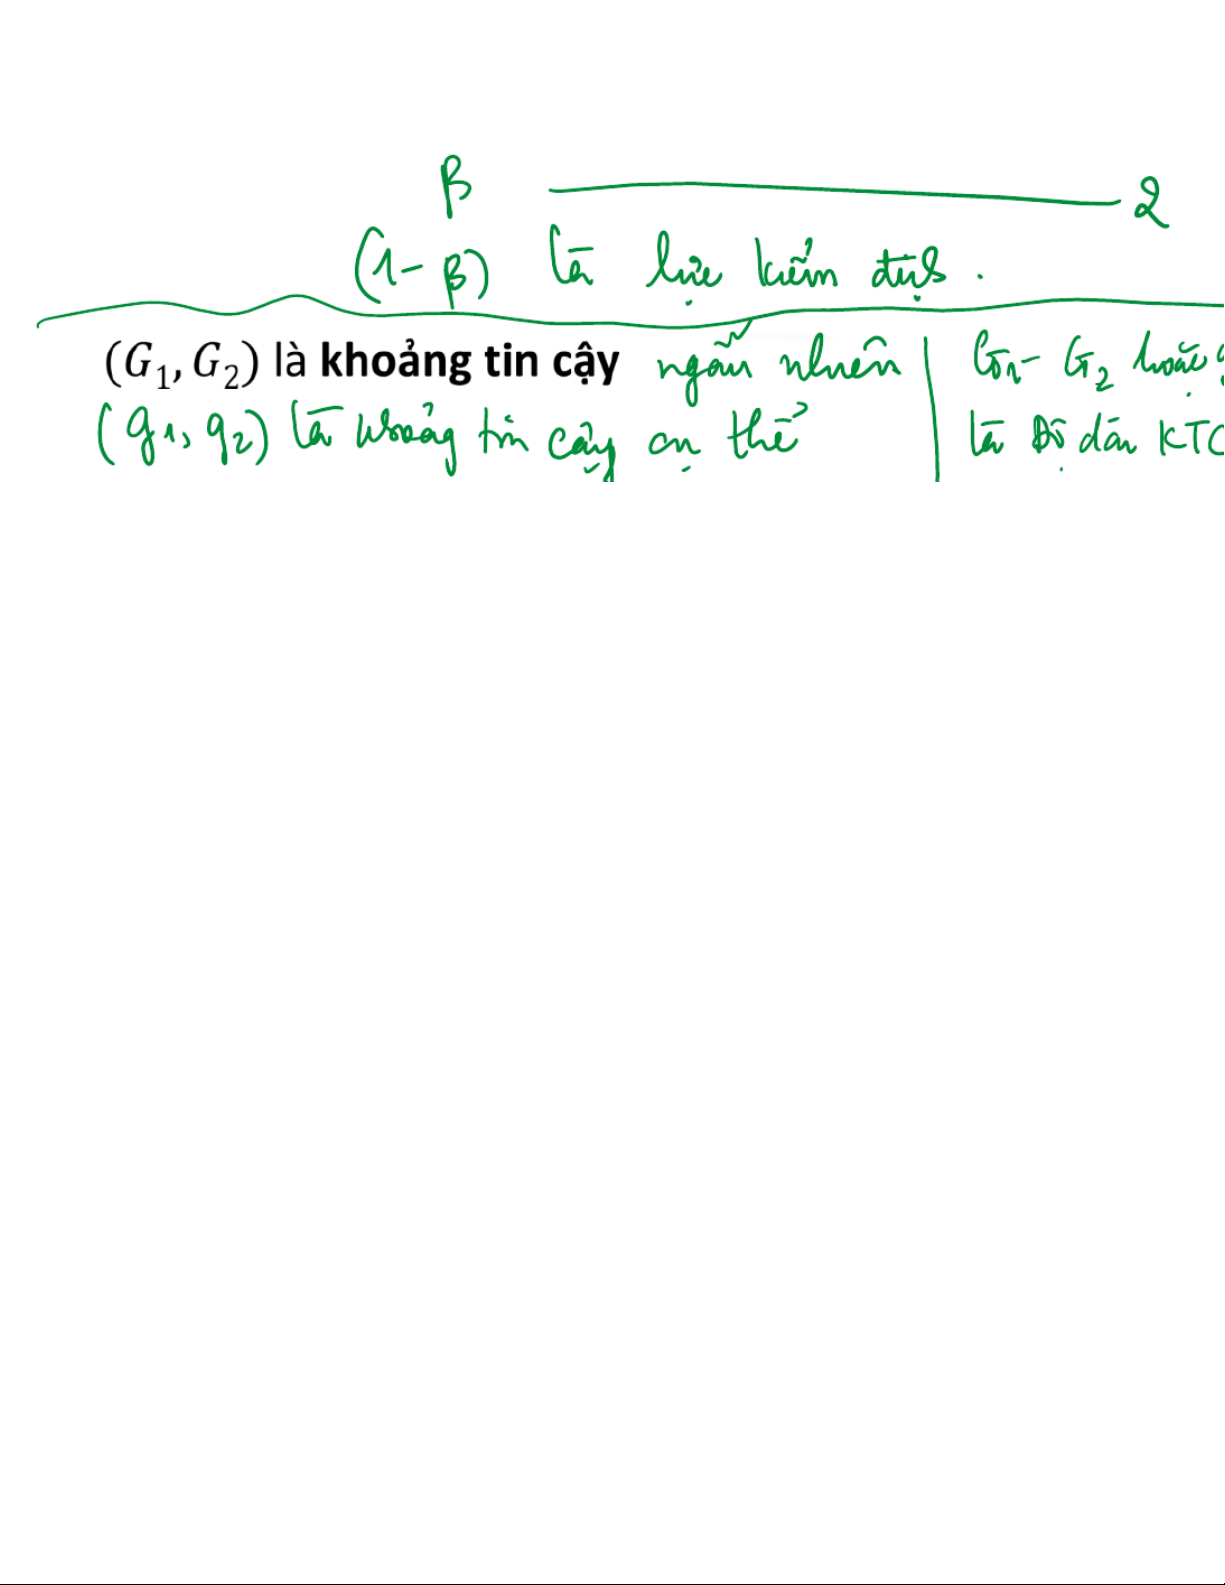 β ——— 2
(1-β) là lực kiểm định.
(G₁, G₂) là khoảng tin cậy ngẫu nhiên | G₁-G₂ hoặc g
(g₁, g₂) là khoảng tin cậy cụ thể | là Độ dài KTC